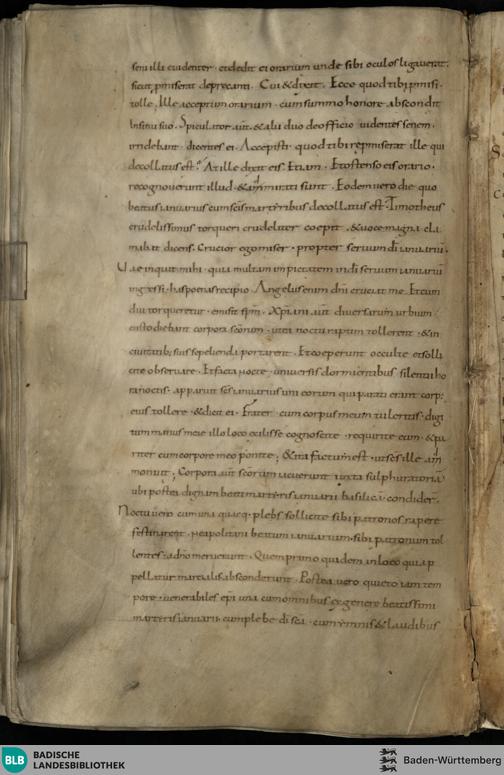 seni illi euidenter · et dedit ei orarium unde sibi oculos ligauerat·
sicut promiserat deprecanti · Cui & dixit · Ecce quod tibi promisi ·
tolle · Ille acceptum orarium · cum summo honore abscondit
In sinu suo · Speculator aut̄ & alii duo de officio uidentes senem ·
irridebant · dicentes ei · Accepisti quod tibi repromiserat ille qui
decollatus est · At ille dixit eis · Etiam · Et ostenso eis orario ·
recognouerunt illud · & ammirati sunt · Eodem uero die quo
beatus ianuarius cum scīs martyribus decollatus est · Timotheus
crudelissimus torqueri crudeliter coepit · & uoce magna cla
mabat dicens · Crucior ego miser · propter seruum dī ianuariū ·
Uae inquit mihi · quia multam impietatem in dī seruum ianuariū
ingessi · has poenas recipio · Angelus enim dn̄i cruciat me · Et cum
diu torqueretur · emisit spm̄ · Xpiani aut̄ diuersarum urbium
custodiebant corpora scōrum · uti noctu raptum tollerent · & in
ciuitatibus suis sepelienda portarent · Et coeperunt occulte et solli
cite obseruare · Et facta nocte · uniuersis dormientibus silentii ho
ra noctis · apparuit scs̄ ianuarius uni eorum qui parati erant corp·
eius tollere · & dicit ei · Frater · cum corpus meum tuleritis · digi
tum manus meae illo loco excisse cognoscite · requirite eum · & pa
riter cum corpore meo ponite · & ita factum est · ut scs̄ ille am̄
monuit · Corpora aut̄ scōrum iacuerunt iuxta sulphurataria
ubi postea dignam beati martyris ianuarii basilicā condider̄ ·
Noctu uero cum una quaeq · plebs sollicite sibi patronos rapere
festinaret · neapolitani beatum ianuarium · sibi patronum tol
lentes · a dn̄o meruerunt · Quem primo quidem in loco qui ap
pellatur marcialis absconderunt · Postea uero quieto iam tem
pore · uenerabiles ep̄i una cum omnibus ex genere beatissimi
martyris ianuarii cum plebe dī scā · cum ymnis & laudibus
BLB
BADISCHE
LANDESBIBLIOTHEK
Baden-Württemberg